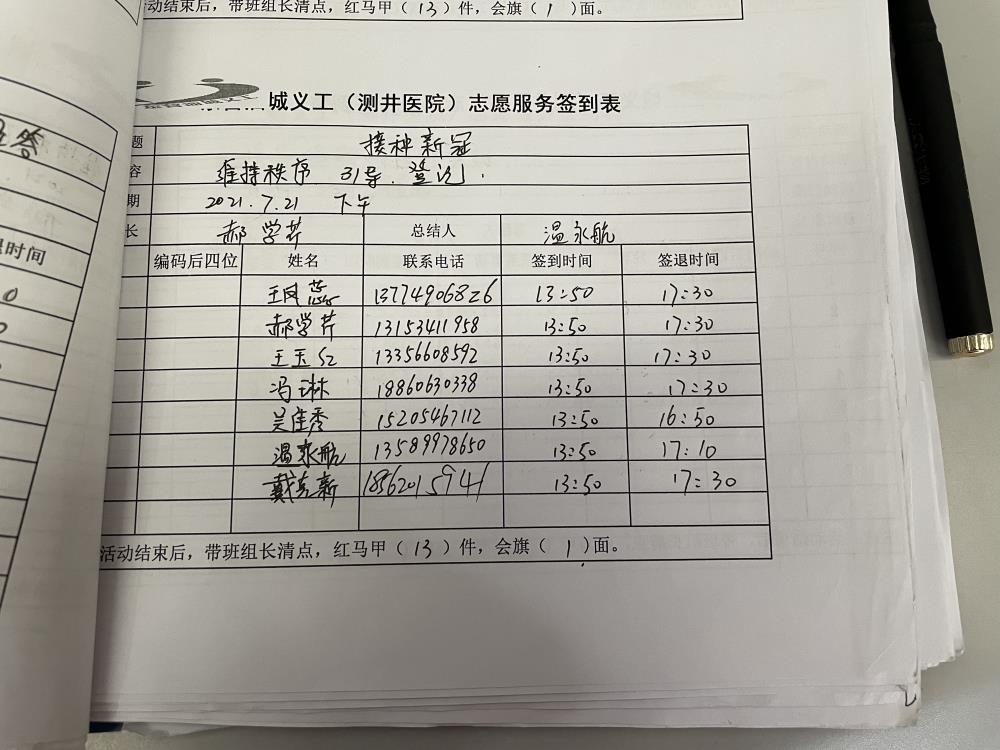 动结束后，带班组长清点，红马甲（13）件，会旗（1）面。
城义工（测井医院）志愿服务签到表
题 接种新冠
容 维持秩序、引导、登记.
期 2021.7.21 下午
长 郝学芹 总结人 温永航
编码后四位 姓名 联系电话 签到时间 签退时间
王凤蕊 13774906826 13:50 17:30
郝学芹 13153411958 13:50 17:30
王玉红 13356608592 13:50 17:30
冯琳 18860630338 13:50 17:30
吴佳秀 15205467112 13:50 16:50
温永航 13589978650 13:50 17:10
戴克新 18562015941 13:50 17:30
活动结束后，带班组长清点，红马甲（13）件，会旗（1）面。
签
时间